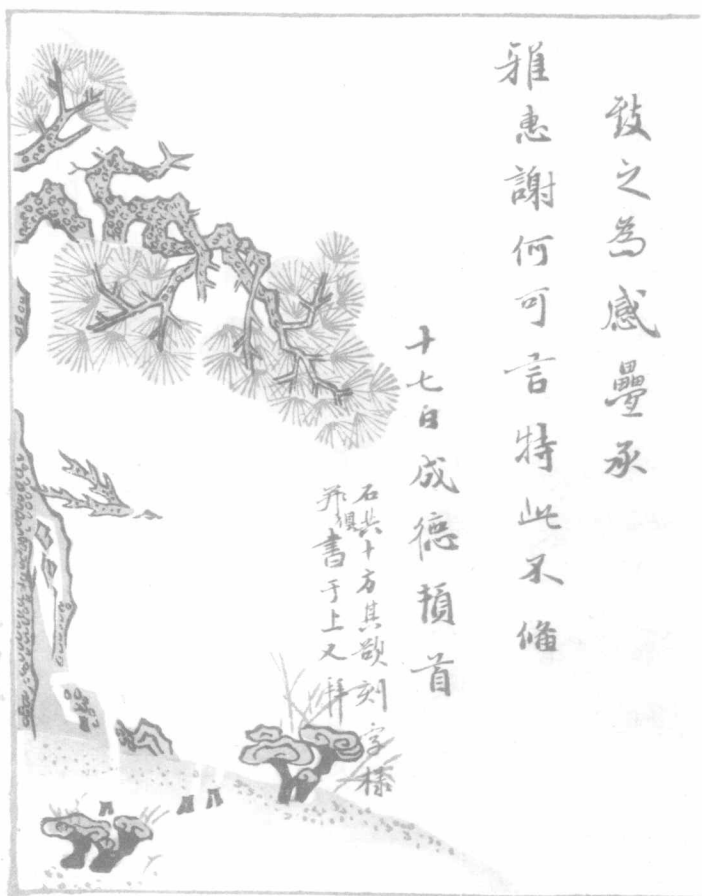 致之為感疊承
雅惠謝何可言特此不備
十七日成德頓首
石共十方其欲刻字樣
并俱書于上又拜